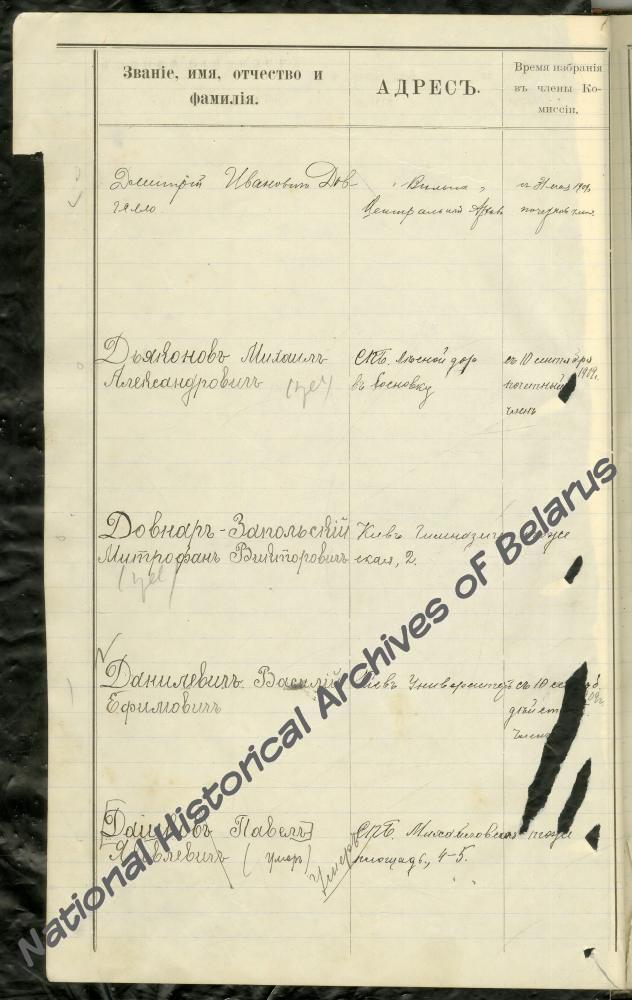 Званіе, имя, отчество и
фамилія.
АДРЕСЪ.
Время избранія
въ члены Ко-
миссіи.
Дмитрій Ивановичъ Дов-
гялло
"Вильна"
Центральный Архивъ
Дьяконовъ Михаилъ
Александровичъ
СПБ. Лѣсной дор
въ Сосновку
съ 10 сентября
1909г.
почетный
членъ
Довнаръ-Запольскій
Митрофанъ Викторовичъ
Кіевъ Гимназиче
ская, 2.
тоже
Данилевичъ Василій
Ефимовичъ
Кіевъ Университетъ
съ 10 сентяб.
дѣйст
членъ
Дашковъ Павелъ
Яковлевичъ (умеръ)
умеръ
СПБ. Михайловская
площадь, 4-5.
тоже
National Historical Archives of Belarus